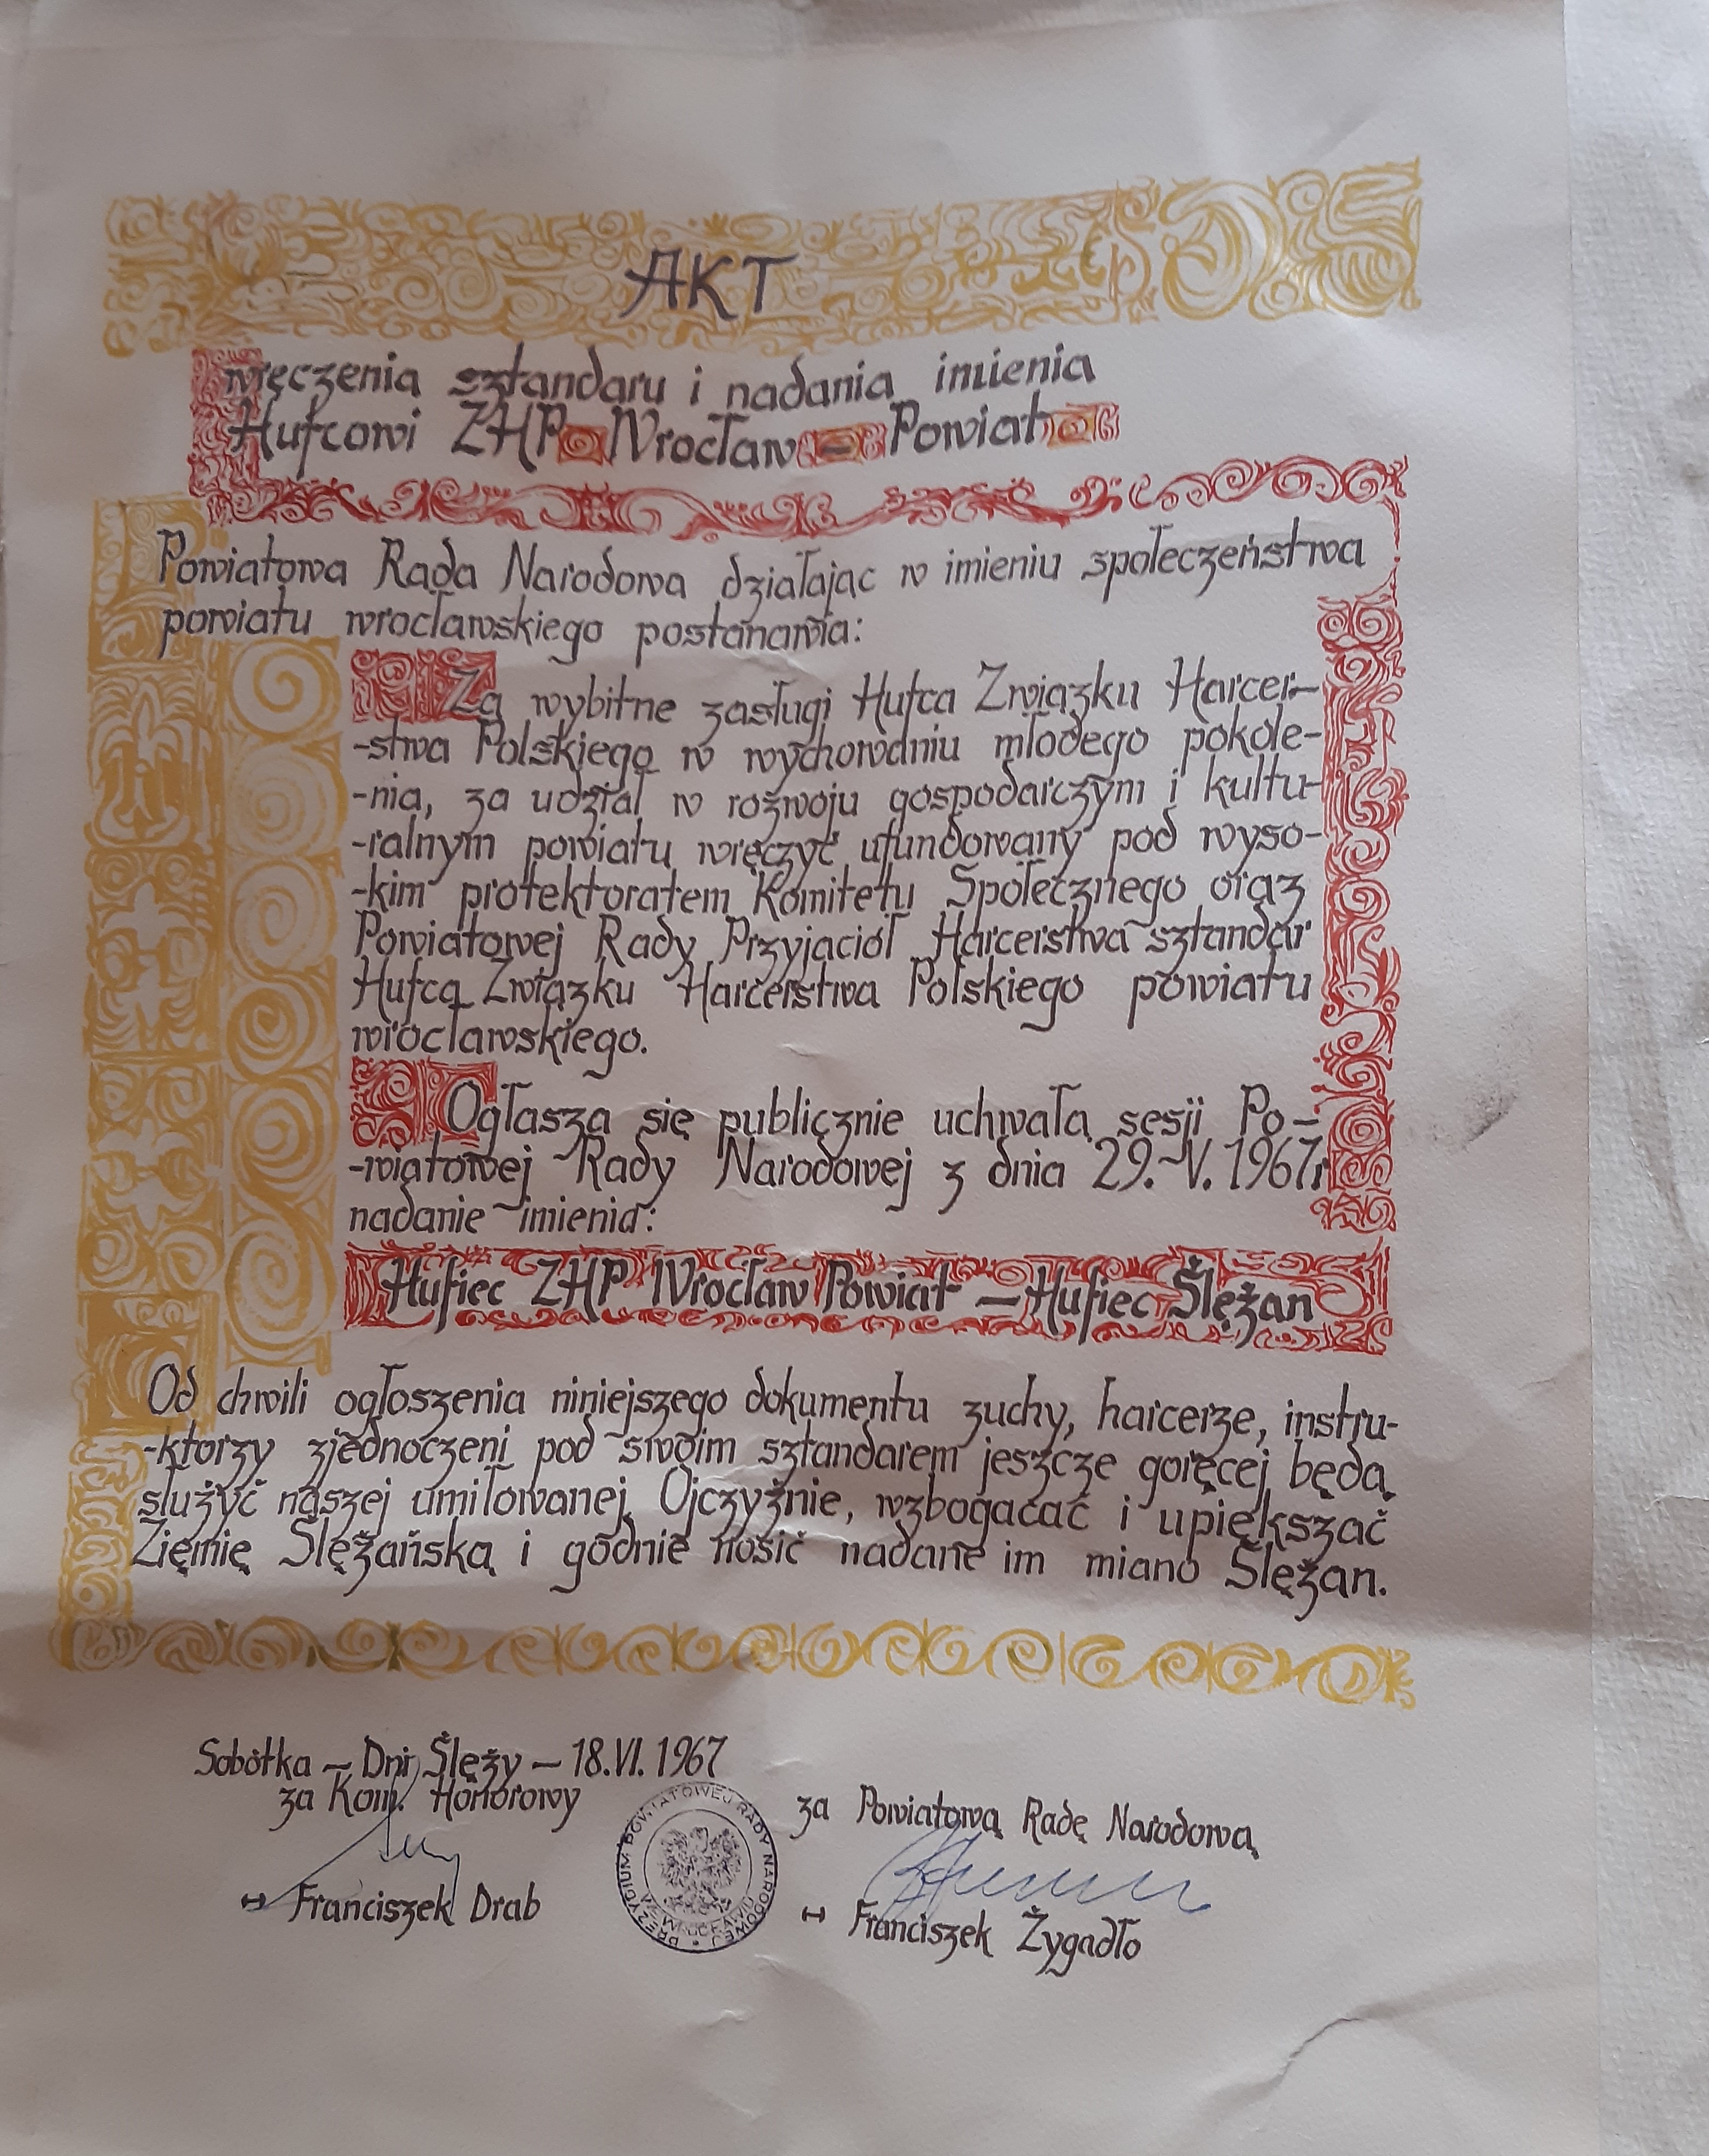 AKT
wręczenia sztandaru i nadania imienia
Hufcowi ZHP Wrocław – Powiat
Powiatowa Rada Narodowa działając w imieniu społeczeństwa
powiatu wrocławskiego postanawia:
Za wybitne zasługi Hufca Związku Harcer-
-stwa Polskiego w wychowaniu młodego pokole-
-nia, za udział w rozwoju gospodarczym i kultu-
-ralnym powiatu wręczyć ufundowany pod wyso-
-kim protektoratem Komitetu Społecznego oraz
Powiatowej Rady Przyjaciół Harcerstwa sztandar
Hufca Związku Harcerstwa Polskiego powiatu
wrocławskiego.
Ogłasza się publicznie uchwałą sesji Po-
-wiatowej Rady Narodowej z dnia 29.V.1967r
nadanie imienia:
Hufiec ZHP Wrocław Powiat – Hufiec Ślężan
Od chwili ogłoszenia niniejszego dokumentu zuchy, harcerze, instru-
-ktorzy zjednoczeni pod swoim sztandarem jeszcze goręcej będą
służyć naszej umiłowanej Ojczyźnie, wzbogacać i upiększać
Ziemię Ślężańską i godnie nosić nadane im miano Ślężan.
Sobótka – Dni Ślęży – 18.VI.1967
za Kom. Honorowy
za Powiatową Radę Narodową
Franciszek Drab
Franciszek Żygadło
PREZYDIUM POWIATOWEJ RADY NARODOWEJ
WE WROCŁAWIU